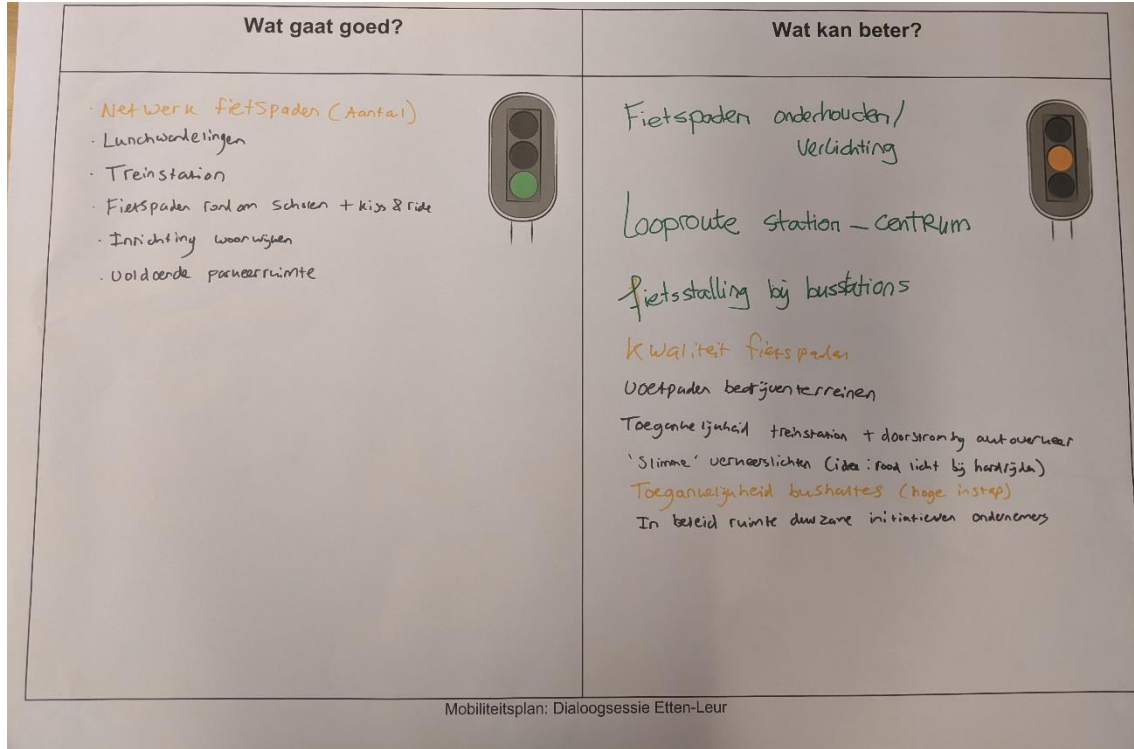 Wat gaat goed?
Wat kan beter?
· Netwerk fietspaden (Aantal)
· Lunchwandelingen
· Treinstation
· Fietspaden rondom scholen + kiss & ride
· Inrichting woonwijken
· Voldoende parkeerruimte
Fietspaden onderhouden/
Verlichting
Looproute station - centrum
fietsstalling bij busstations
Kwaliteit fietspaden
Voetpaden bedrijventerreinen
Toegankelijkheid treinstation + doorstroming autoverkeer
'Slimme' verkeerslichten (idee: rood licht bij hardrijden)
Toegankelijkheid bushaltes (hoge instap)
In beleid ruimte duurzame initiatieven ondernemers
Mobiliteitsplan: Dialoogsessie Etten-Leur